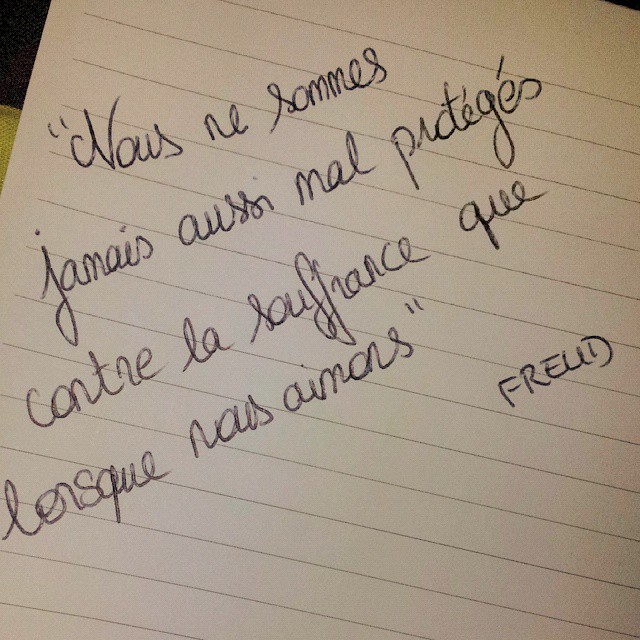 "Nous ne sommes
jamais aussi mal protégés
contre la souffrance que
lorsque nous aimons"
FREUD